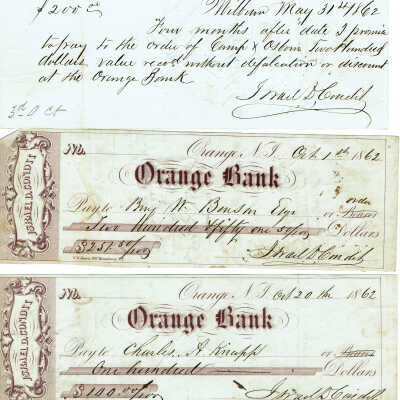 $200.00 Milburn May 31st 1862
Four months after date I promise
to pay to the order of Camp & Osborn Two Hundred
dollars value recd without defalcation or discount
at the Orange Bank
Israel D. Condit
3rd Oct
ISRAEL D. CONDIT
No. Orange N.J. Oct 1st 1862
Orange Bank
order
Pay to Benj W. Bonson Esqr or Bearer
Two Hundred & fifty one 50/100 Dollars
$251 50/100 Israel D Condit
ISRAEL D. CONDIT
No. Orange N.J. Oct 20th 1862
Orange Bank
Pay to Charles A Knapp or Bearer
One hundred Dollars
$100.00/100 Israel D Condit